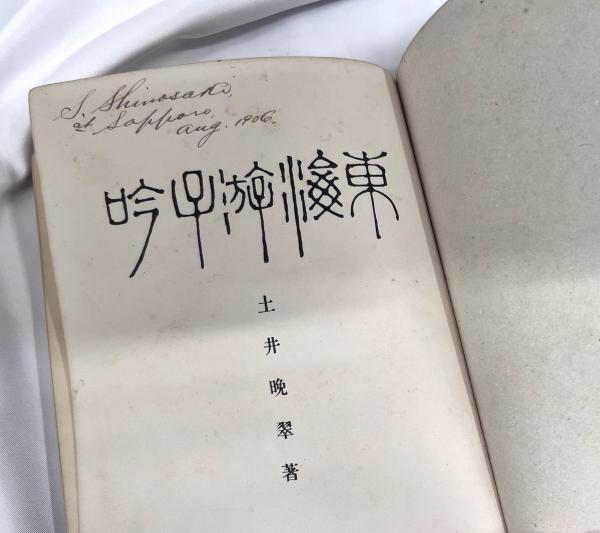 S. Shinosaki,
at Sapporo,
Aug. 1906.
東海游子吟
土井晩翠著